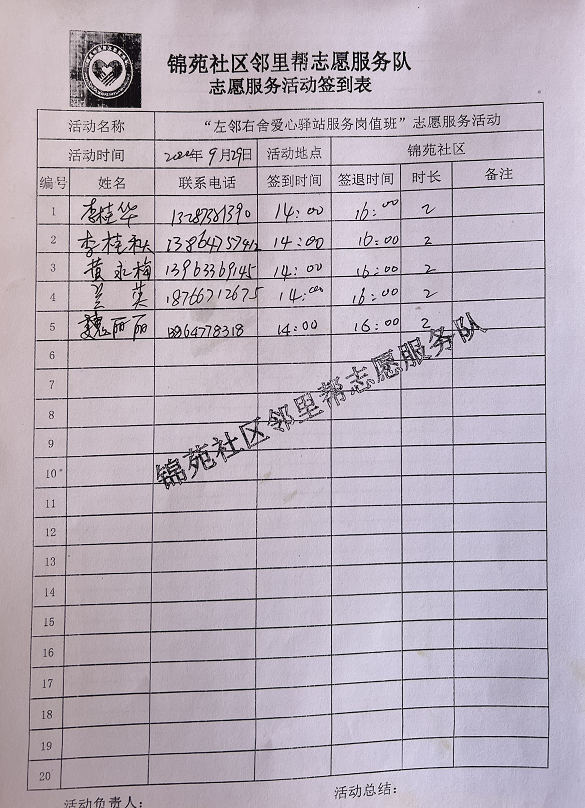 锦苑社区邻里帮志愿服务队
志愿服务活动签到表
活动名称 “左邻右舍爱心驿站服务岗值班”志愿服务活动
活动时间 年9月29日 活动地点 锦苑社区
编号 姓名 联系电话 签到时间 签退时间 时长 备注
1 李桂华 14:00 16:00 2
2 李桂秋 13864757412 14:00 16:00 2
3 黄永梅 13963369145 14:00 16:00 2
4 兰英 18766712675 14:00 16:00 2
5 魏丽丽 14:00 16:00 2
6
7
8
9
10
11
12
13
14
15
16
17
18
19
20
锦苑社区邻里帮志愿服务队
活动负责人: 活动总结: